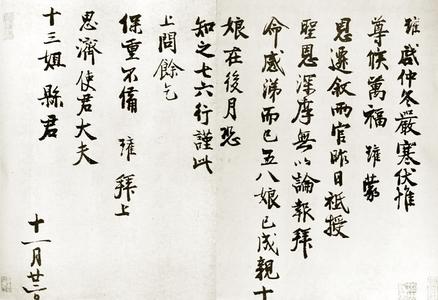 啟仲冬嚴寒伏惟
尊候萬福 蒙
恩遷敘兩官昨日祗授
聖恩深厚無以論報拜
命感涕而已五八娘已成親十
娘在後月恐
知之七六行謹此
上問餘乞
保重不備 拜上
思濟使君大夫
十三姐縣君
十一月廿日